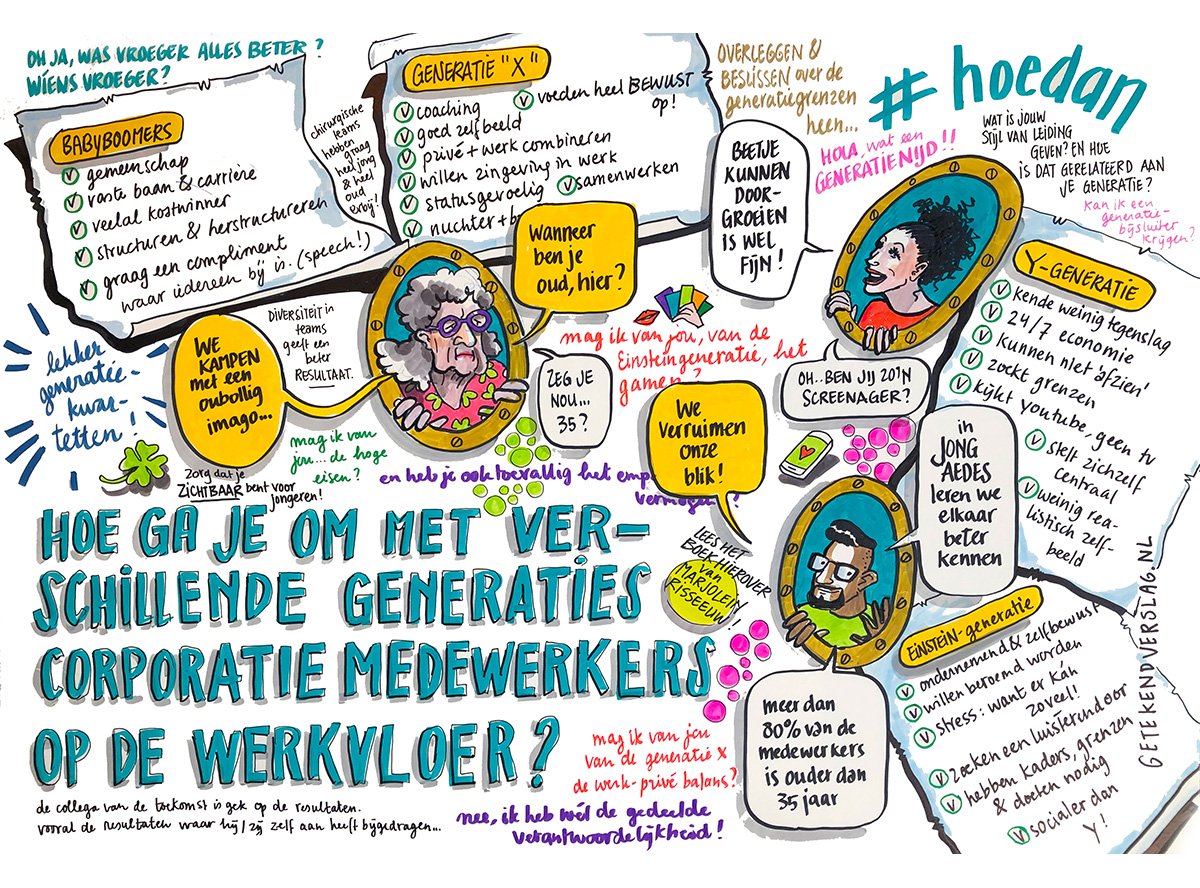 OH JA, WAS VROEGER ALLES BETER?
WIENS VROEGER?
BABYBOOMERS
gemeenschap
vaste baan & carrière
veelal kostwinner
structuren & herstructureren
graag een compliment
waar iedereen bij is. (speech!)
chirurgische
teams
hebben
graag
heel jong
& heel
oud
erbij!
GENERATIE "X"
coaching
voeden heel BEWUST
op!
goed zelfbeeld
privé + werk combineren
willen zingeving in werk
statusgevoelig
samenwerken
nuchter +
OVERLEGGEN &
BESLISSEN over de
generatiegrenzen
heen...
# hoedan
HOLA, wat een
GENERATIENIJD!!
WAT IS JOUW
STIJL VAN LEIDING
GEVEN? EN HOE
IS DAT GERELATEERD AAN
JE GENERATIE?
Kan ik een
generatie-
bijsluiter
krijgen?
BEETJE
KUNNEN
DOOR-
GROEIEN
IS WEL
FIJN!
Wanneer
ben je
oud, hier?
WE
KAMPEN
met een
oubollig
imago...
DIVERSITEIT in
teams
geeft een
beter
RESULTAAT.
lekker
generatie-
kwar-
tetten!
ZEG JE
NOU...
35?
mag ik van jou, van de
Einsteingeneratie, het
gamen?
OH..BEN JIJ ZO'N
SCREENAGER?
Y-GENERATIE
kende weinig tegenslag
24/7 economie
kunnen niet 'afzien'
zoekt grenzen
kijkt youtube, geen tv
stelt zichzelf
centraal
weinig rea-
listisch zelf-
beeld
mag ik van
jou... de hoge
eisen?
Zorg dat je
ZICHTBAAR bent voor
jongeren!
en heb je ook toevallig het
We
verruimen
onze
blik!
in
JONG
AEDES
leren we
elkaar
beter
kennen
LEES HET
BOEK HIEROVER
van
MARJOLEIN
RISSEEUW!
HOE GA JE OM MET VER-
SCHILLENDE GENERATIES
CORPORATIE MEDEWERKERS
OP DE WERKVLOER?
EINSTEIN-generatie
ondernemend & zelfbewust
willen beroemd worden
stress: want er kán
zoveel!
zoeken een luisterend oor
hebben kaders, grenzen
& doelen nodig
socialer dan
Y!
GETEKENDVERSLAG.NL
meer dan
80% van de
medewerkers
is ouder dan
35 jaar
mag ik van jou
van de generatie x
de werk-privé balans?
nee, ik heb wél de gedeelde
verantwoordelijkheid!
de collega van de toekomst is gek op de resultaten.
vooral de resultaten waar hij/zij zelf aan heeft bijgedragen...